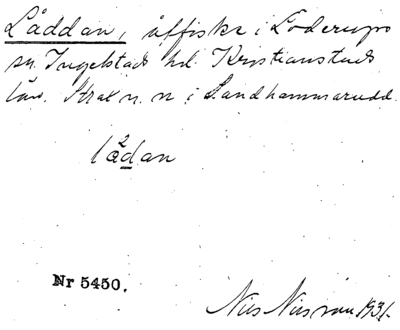 Låddan, ålfiske i Löderups
sn. Ingelstads hd. Kristianstads
län. Strax n. n. i Sandhammarudd.
lådan
Nr 5450.
Nils Nilsson 1931.